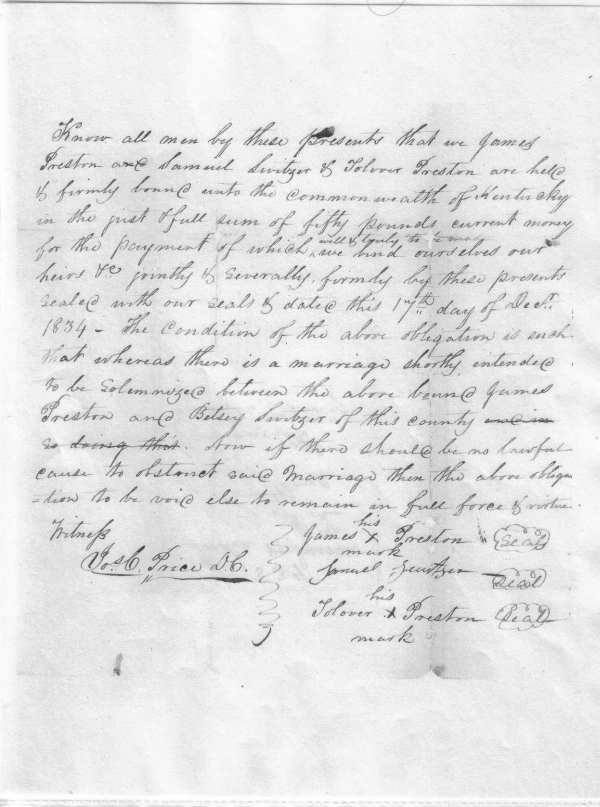 Know all men by these presents that we James
Preston and Samuel Switzer & Tolover Preston are held
& firmly bound unto the commonwealth of Kentucky
in the just & full sum of fifty pounds current money
will & truly to be made
for the payment of which we bind ourselves our
heirs &c jointly & severally, firmly by these presents
sealed with our seals & dated this 17th day of Decr.
1834 - The Condition of the above obligation is such
that whereas there is a marriage shortly intended
to be Solemnized between the above bound James
Preston and Betsey Switzer of this county and in
so doing that. Now if there should be no lawful
cause to obstruct said Marriage then the above obliga
-tion to be void else to remain in full force & virtue.
Witness
Jos. C. Price D.C.
his
James X Preston Seal
mark
Samuel Switzer Seal
his
Tolover X Preston Seal
mark